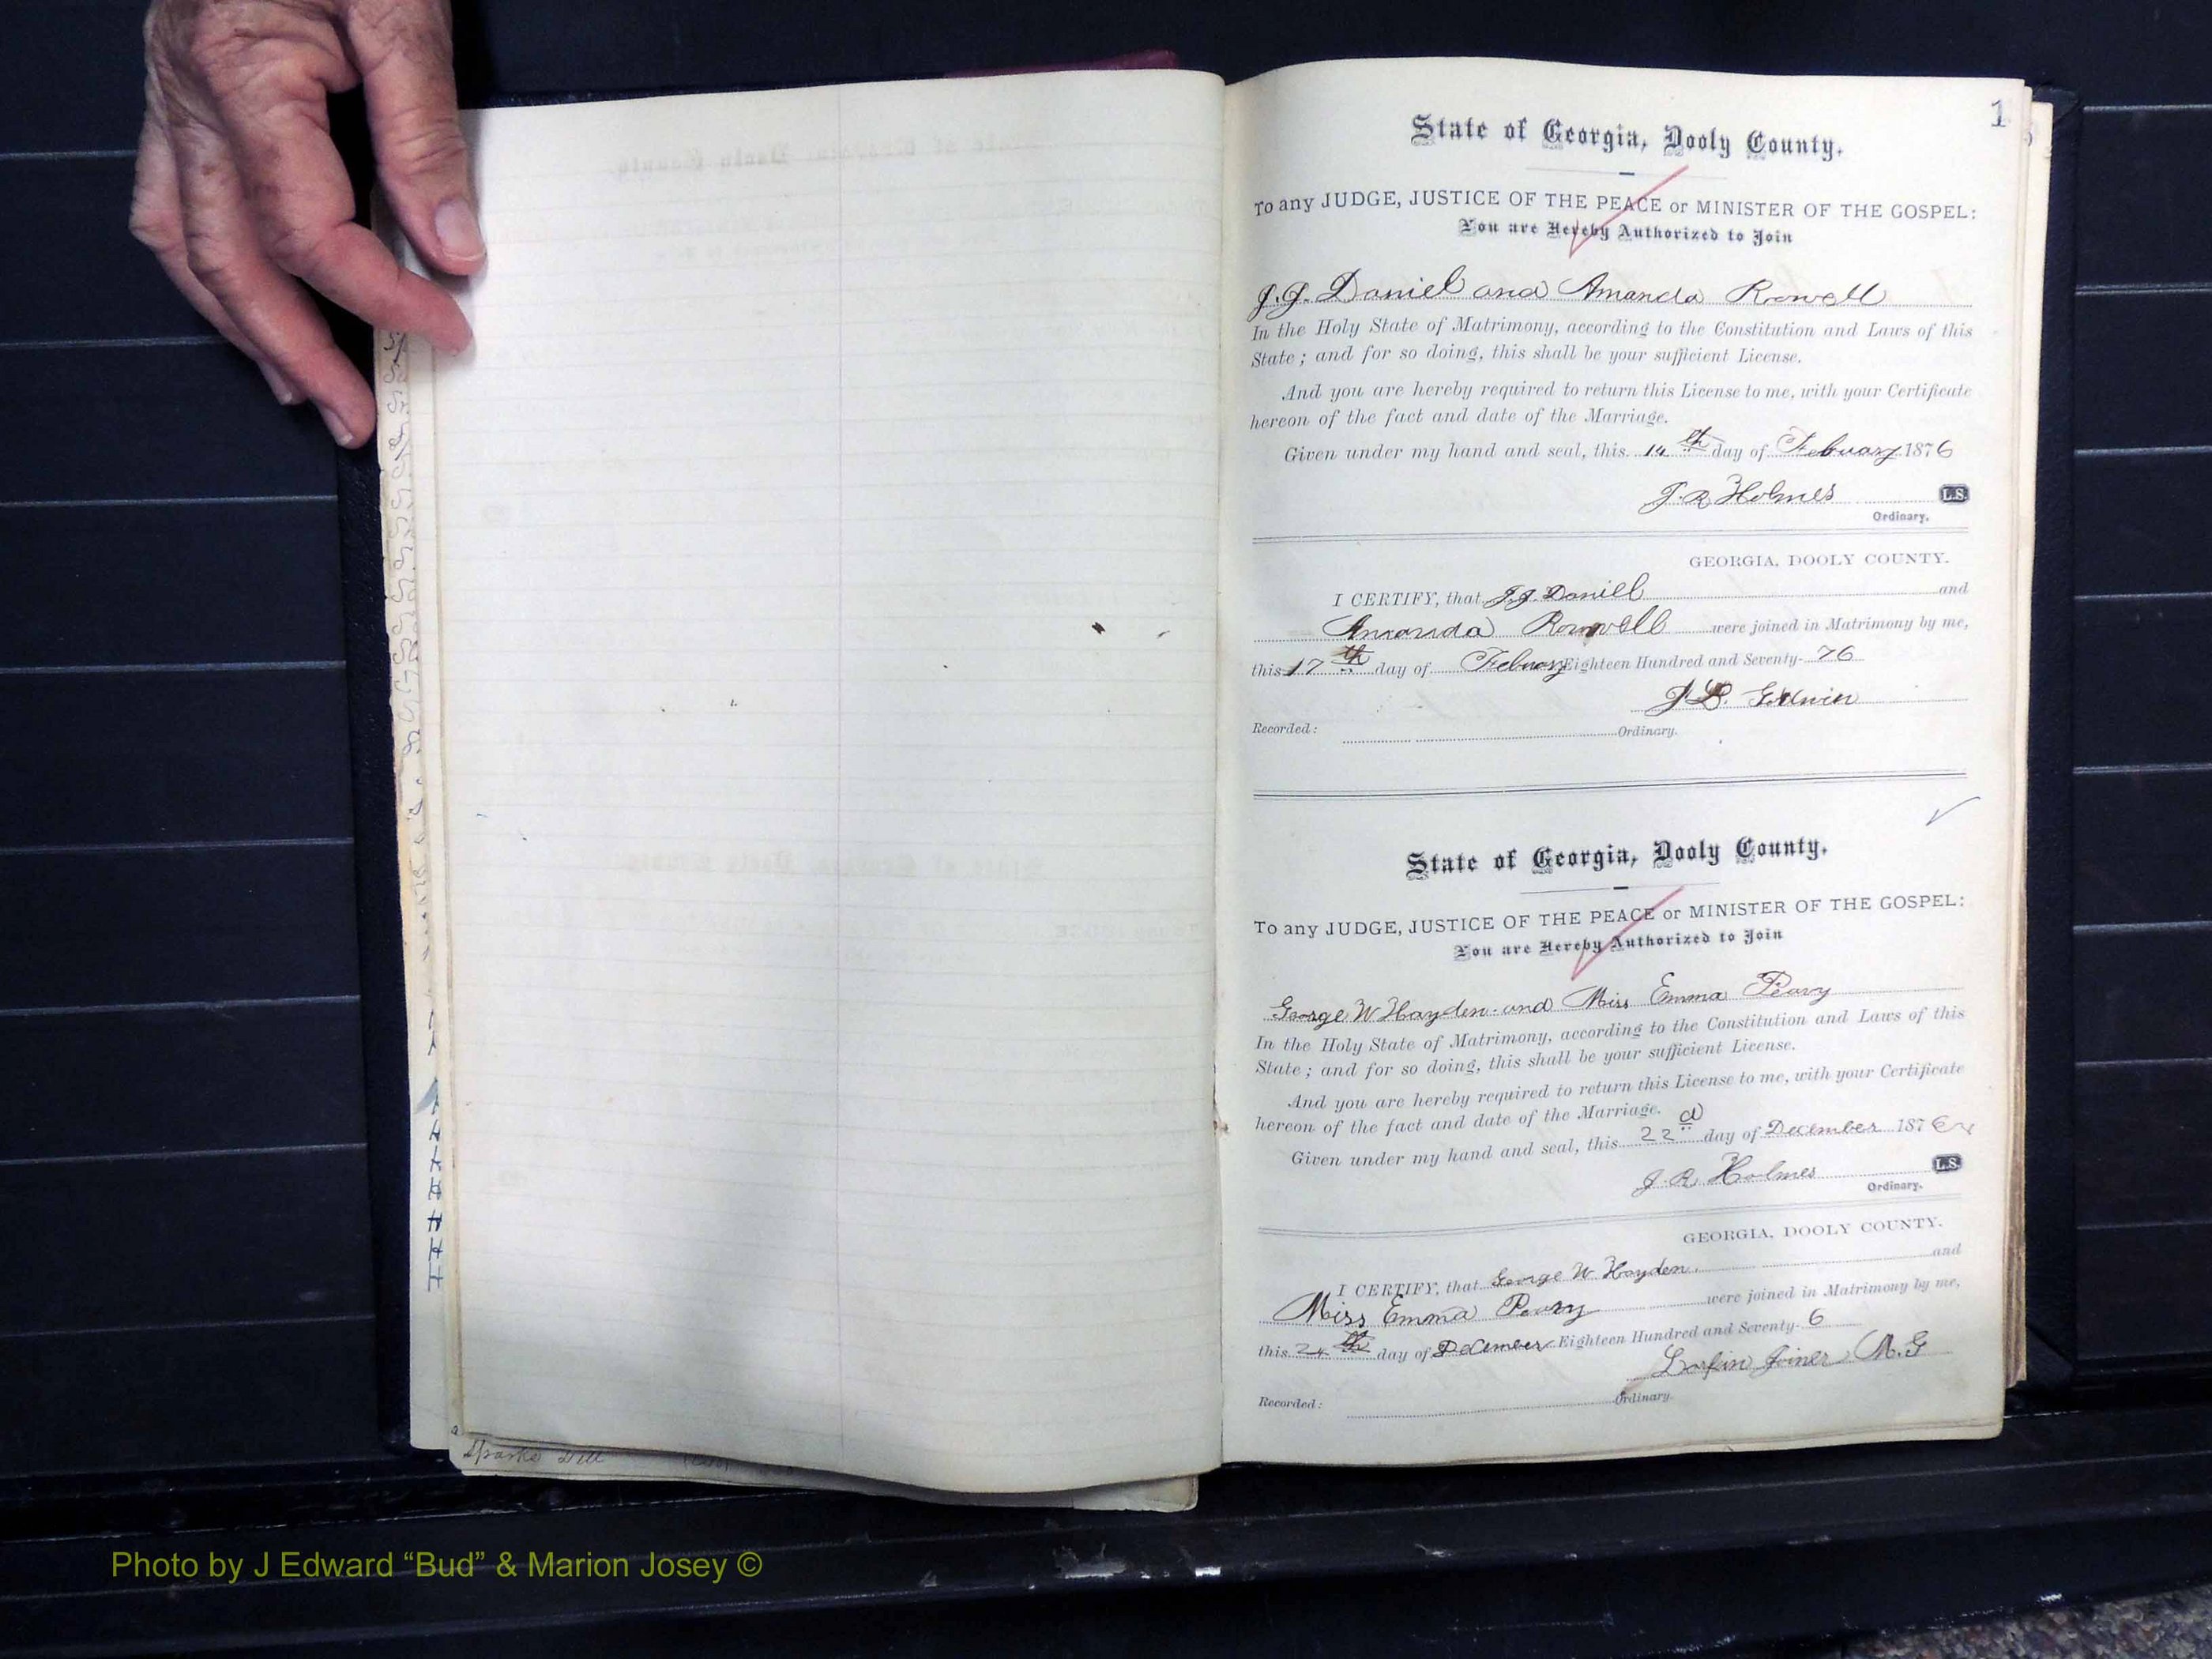 1
State of Georgia, Dooly County.
To any JUDGE, JUSTICE OF THE PEACE or MINISTER OF THE GOSPEL:
You are Hereby Authorized to Join
J.J. Daniel and Amanda Rowell
In the Holy State of Matrimony, according to the Constitution and Laws of this
State; and for so doing, this shall be your sufficient License.
And you are hereby required to return this License to me, with your Certificate
hereon of the fact and date of the Marriage.
Given under my hand and seal, this 14th day of February 1876
J. R Holmes L.S.
Ordinary.
GEORGIA, DOOLY COUNTY.
I CERTIFY, that J.J. Daniell and
Amanda Rowell were joined in Matrimony by me,
this 17th day of Eighteen Hundred and Seventy- 76
Recorded: Ordinary.
State of Georgia, Dooly County.
To any JUDGE, JUSTICE OF THE PEACE or MINISTER OF THE GOSPEL:
You are Hereby Authorized to Join
George W Hayden and Miss Emma Peavy
In the Holy State of Matrimony, according to the Constitution and Laws of this
State; and for so doing, this shall be your sufficient License.
And you are hereby required to return this License to me, with your Certificate
hereon of the fact and date of the Marriage.
Given under my hand and seal, this 22d day of December 1876
J. R Holmes L.S.
Ordinary.
GEORGIA, DOOLY COUNTY.
I CERTIFY, that George W Hayden and
Miss Emma Peavy were joined in Matrimony by me,
this 24th day of December Eighteen Hundred and Seventy- 6
Joiner M.G
Recorded: Ordinary.
Photo by J Edward “Bud” & Marion Josey ©